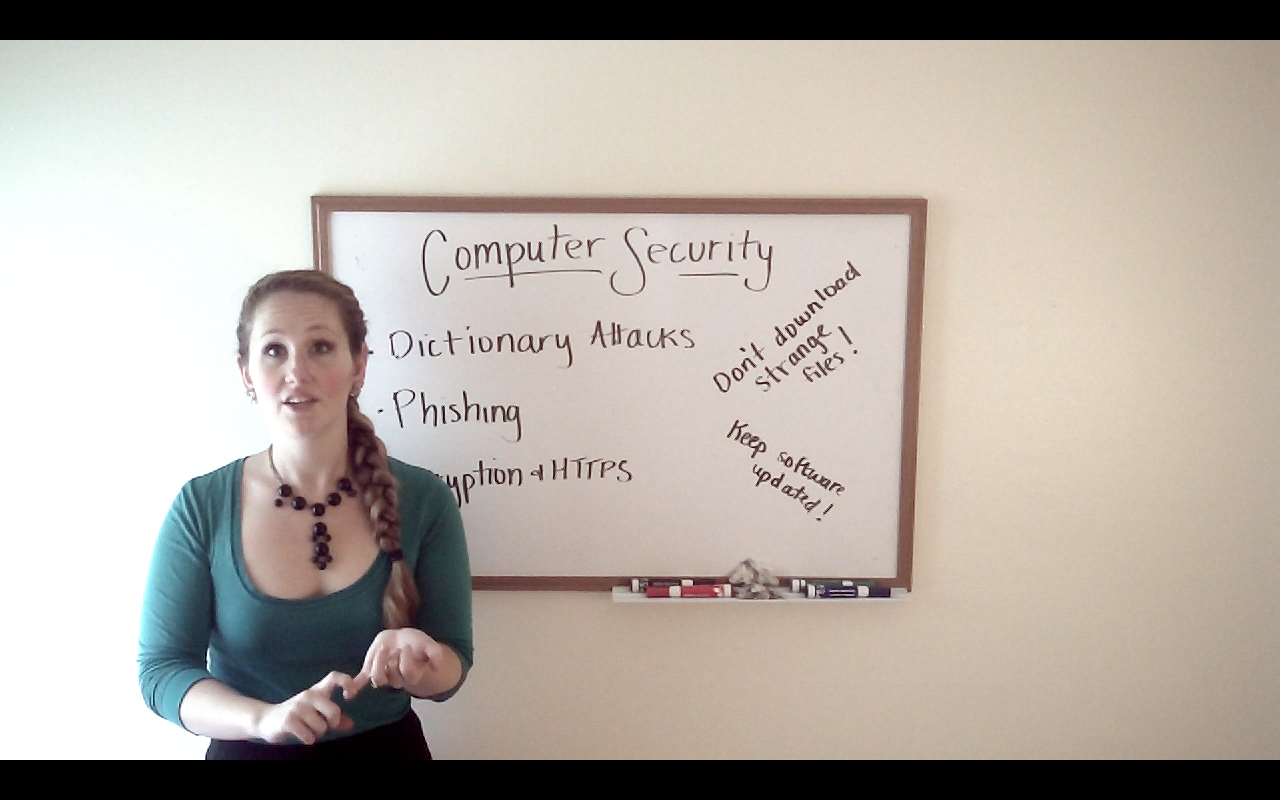 Computer Security
- Dictionary Attacks
- Phishing
yption & HTTPS
Don't download
strange
files!
Keep software
updated!